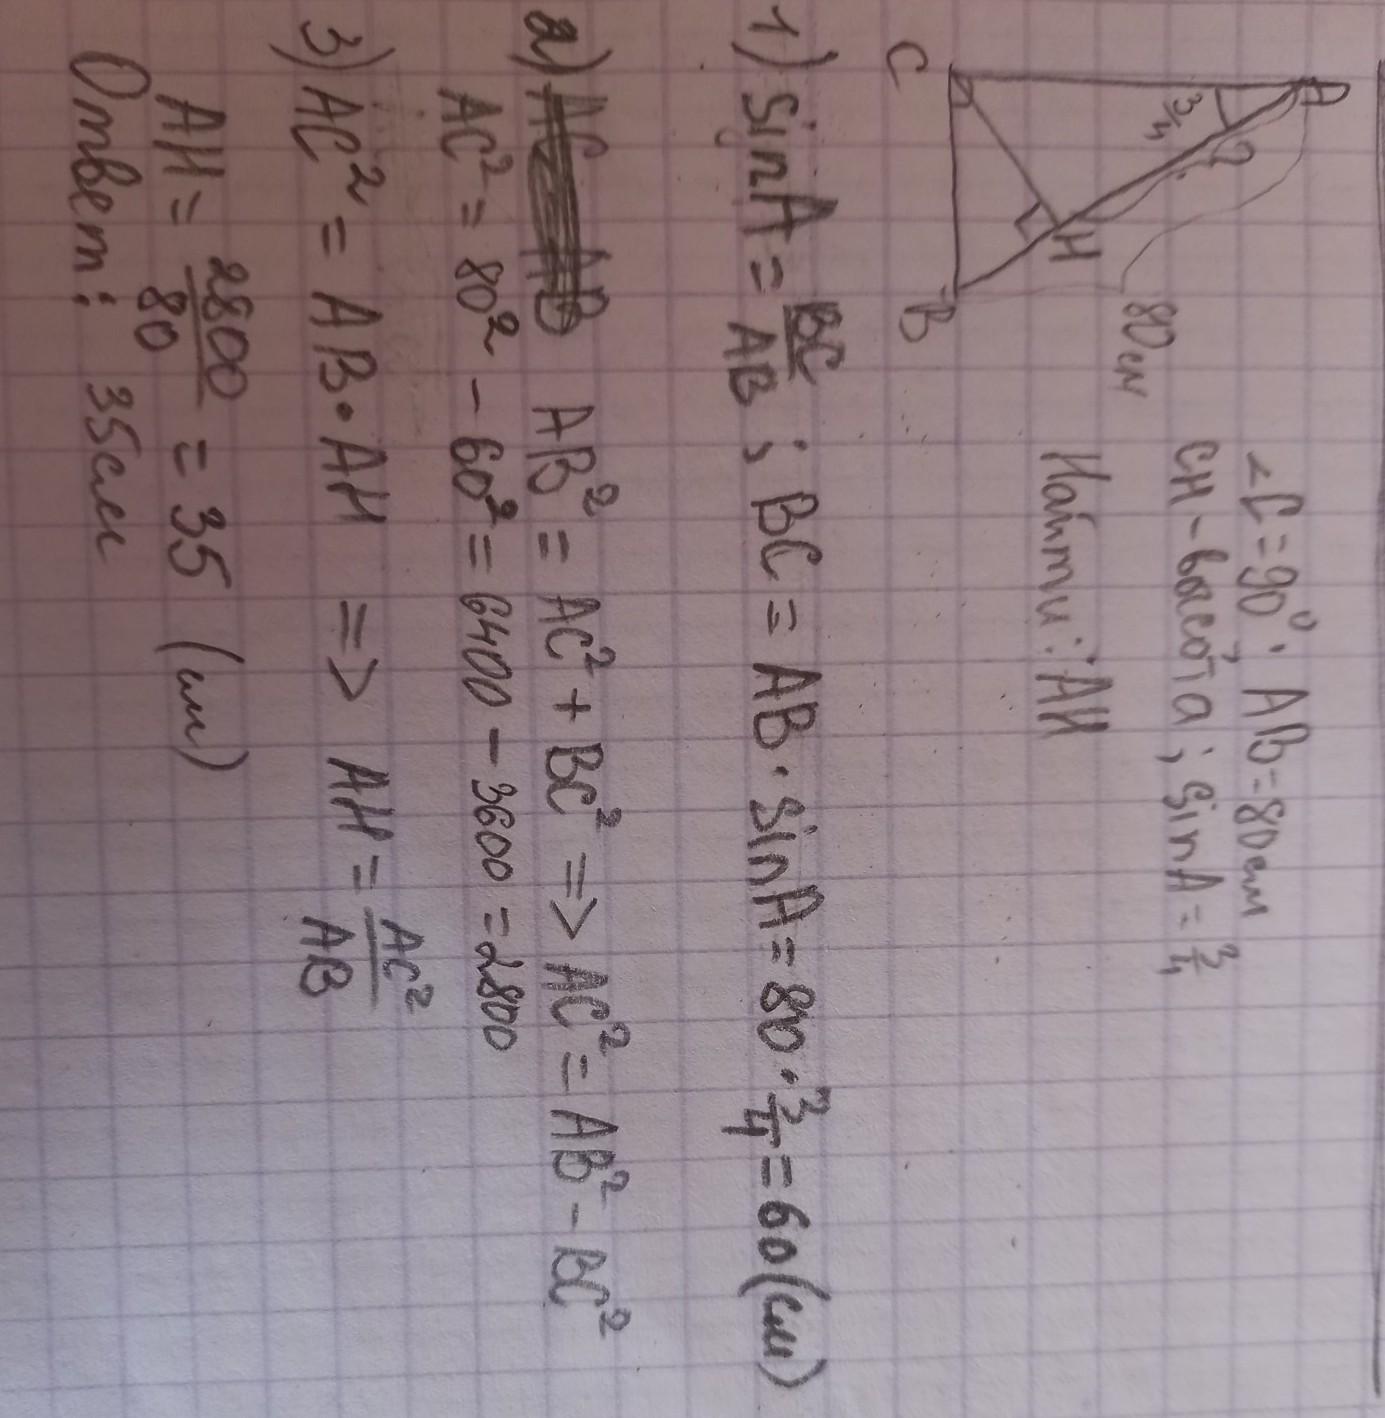 A
3/4
?
H
80см
C
B
∠C=90°; AB=80см
CH-высота; sinA=3/4
Найти: AH
1) sinA = BC/AB ; BC = AB · sinA = 80 · 3/4 = 60 (см)
2) AB² = AC² + BC² => AC² = AB² - BC²
AC² = 80² - 60² = 6400 - 3600 = 2800
3) AC² = AB · AH => AH = AC²/AB
AH = 2800/80 = 35 (см)
Ответ: 35см